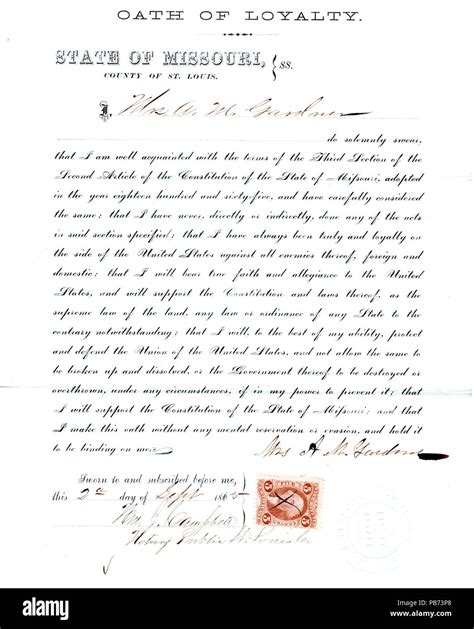 OATH OF LOYALTY.
STATE OF MISSOURI,
COUNTY OF ST. LOUIS.
} SS.
I, Mrs A. M. Gardner
do solemnly swear,
that I am well acquainted with the terms of the Third Section of the
Second Article of the Constitution of the State of Missouri, adopted
in the year eighteen hundred and sixty-five, and have carefully considered
the same; that I have never, directly or indirectly, done any of the acts
in said section specified; that I have always been truly and loyally on
the side of the United States against all enemies thereof, foreign and
domestic; that I will bear true faith and allegiance to the United
States, and will support the Constitution and laws thereof, as the
supreme law of the land, any law or ordinance of any State to the
contrary notwithstanding; that I will, to the best of my ability, protect
and defend the Union of the United States, and not allow the same to
be broken up and dissolved, or the Government thereof to be destroyed or
overthrown, under any circumstances, if in my power to prevent it; that
I will support the Constitution of the State of Missouri; and that
I make this oath without any mental reservation or evasion, and hold it
to be binding on me.
Mrs A M Gardner
Sworn to and subscribed before me,
this 2d day of Sept 1865
Wm. J.
Notary Public St. Louis Co
5 5
X
alamy
Image ID: PB73P8
www.alamy.com